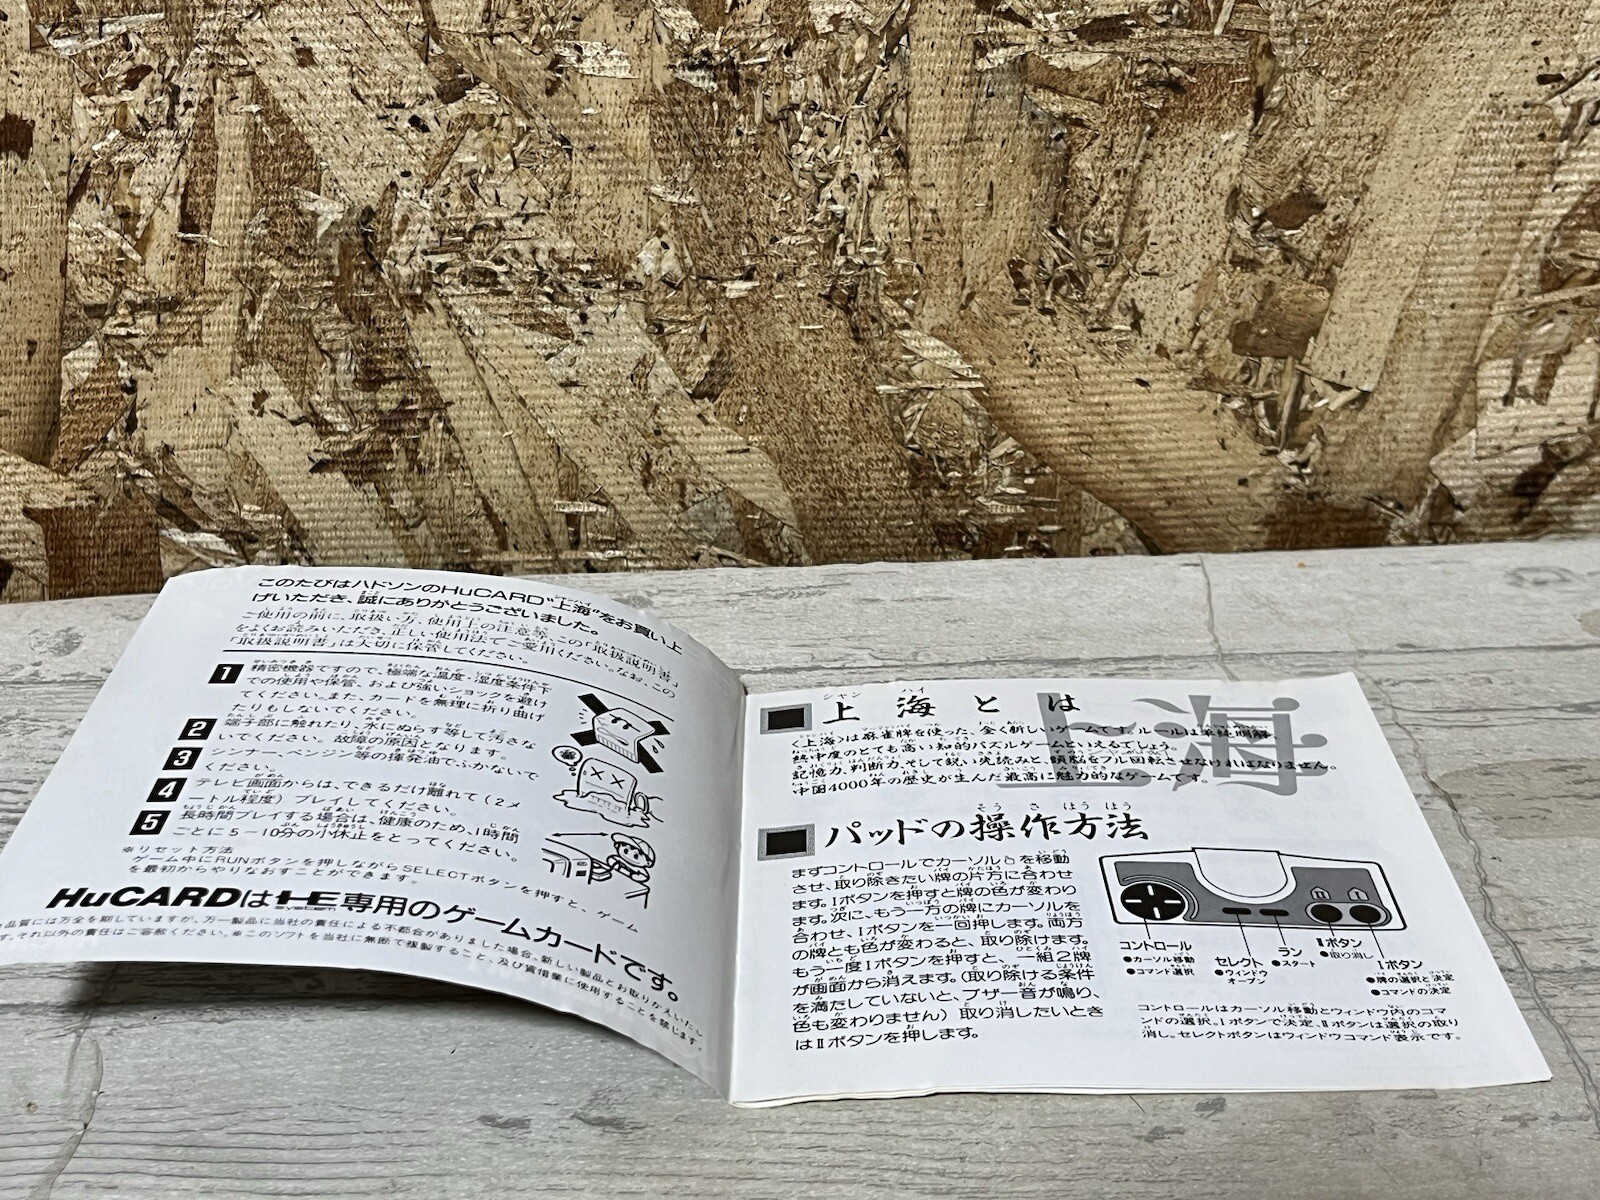 このたびはハドソンのHuCARD"上海"をお買い上
げいただき、誠にありがとうございました。
ご使用の前に、取扱い方、使用上の注意等、この「取扱説明書」
をよくお読みいただき、正しい使用法でご愛用ください。なお、この
「取扱説明書」は大切に保管してください。
1 精密機器ですので、極端な温度・湿度条件下
での使用や保管、および強いショックを避け
てください。また、カードを無理に折り曲げ
たりもしないでください。
2 端子部に触れたり、水にぬらす等して汚さな
いでください。故障の原因となります。
3 シンナー、ベンジン等の揮発油でふかないで
ください。
4 テレビ画面からは、できるだけ離れて(2メ
ートル程度)プレイしてください。
5 長時間プレイする場合は、健康のため、1時間
ごとに5〜10分の小休止をとってください。
※リセット方法
ゲーム中にRUNボタンを押しながらSELECTボタンを押すと、ゲーム
を最初からやりなおすことができます。
HuCARDはHE専用のゲームカードです。
品質には万全を期していますが、万一製品に当社の責任による不都合がありました場合、新しい製品とお取りかえいたし
す。それ以外の責任はご容赦ください。※このソフトを当社に無断で複製すること、及び賃借業に使用することを禁じます。
上海とは
上海
〈上海〉は麻雀牌を使った、全く新しいゲームです。ルールは単純明解
熱中度のとても高い知的パズルゲームといえるでしょう。
記憶力、判断力、そして鋭い先読みと、頭脳をフル回転させなければなりません。
中国4000年の歴史が生んだ最高に魅力的なゲームです。
パッドの操作方法
まずコントロールでカーソルを移動
させ、取り除きたい牌の片方に合わせ
ます。Iボタンを押すと牌の色が変わり
ます。次に、もう一方の牌にカーソルを
合わせ、Iボタンを一回押します。両方
の牌とも色が変わると、取り除けます。
もう一度Iボタンを押すと、一組2牌
が画面から消えます。(取り除ける条件
を満たしていないと、ブザー音が鳴り、
色も変わりません)取り消したいとき
はIIボタンを押します。
コントロール
●カーソル移動
●コマンド選択
セレクト
●ウィンドウ
オープン
ラン
●スタート
IIボタン
●取り消し
Iボタン
●牌の選択と決定
●コマンドの決定
コントロールはカーソル移動とウィンドウ内のコマ
ンドの選択。Iボタンで決定、IIボタンは選択の取り
消し。セレクトボタンはウィンドウコマンド表示です。